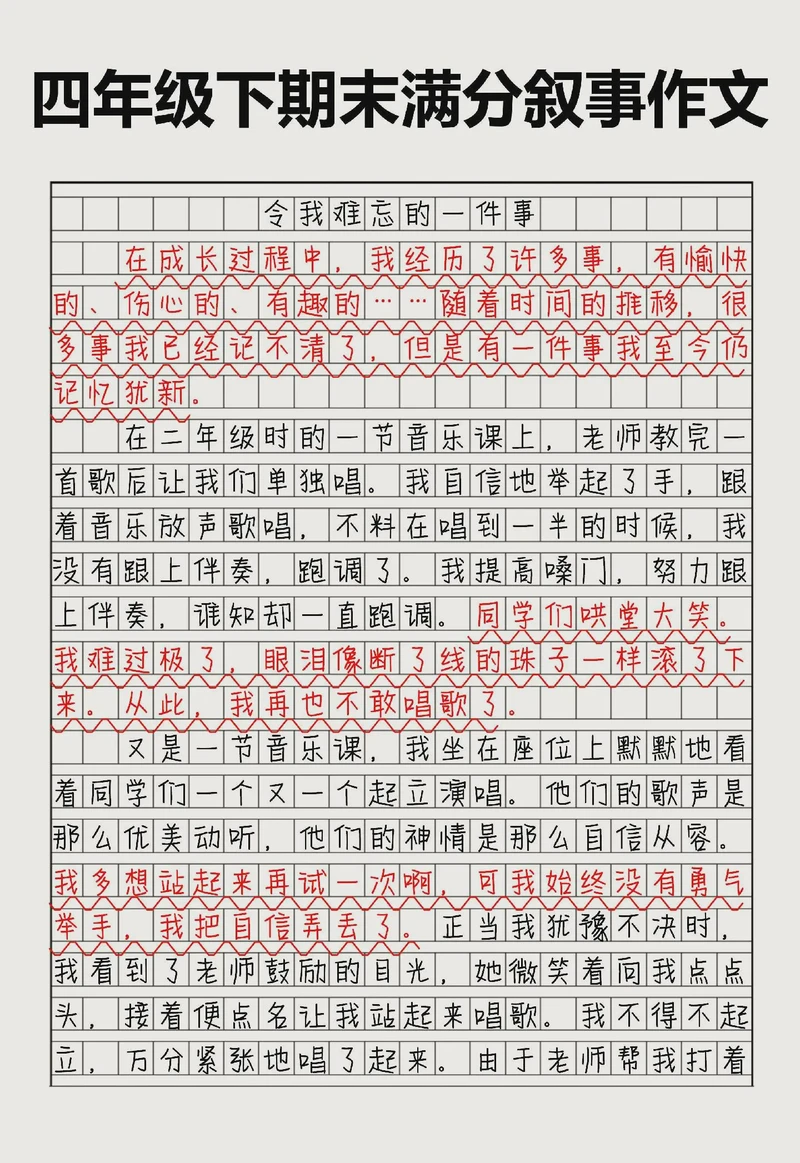 四年级下期末满分叙事作文
令我难忘的一件事
在成长过程中，我经历了许多事，有愉快
的、伤心的、有趣的……随着时间的推移，很
多事我已经记不清了，但是有一件事我至今仍
记忆犹新。
在二年级时的一节音乐课上，老师教完一
首歌后让我们单独唱。我自信地举起了手，跟
着音乐放声歌唱，不料在唱到一半的时候，我
没有跟上伴奏，跑调了。我提高嗓门，努力跟
上伴奏，谁知却一直跑调。同学们哄堂大笑。
我难过极了，眼泪像断了线的珠子一样滚了下
来。从此，我再也不敢唱歌了。
又是一节音乐课，我坐在座位上默默地看
着同学们一个又一个起立演唱。他们的歌声是
那么优美动听，他们的神情是那么自信从容。
我多想站起来再试一次啊，可我始终没有勇气
举手，我把自信弄丢了。正当我犹豫不决时，
我看到了老师鼓励的目光，她微笑着向我点点
头，接着便点名让我站起来唱歌。我不得不起
立，万分紧张地唱了起来。由于老师帮我打着